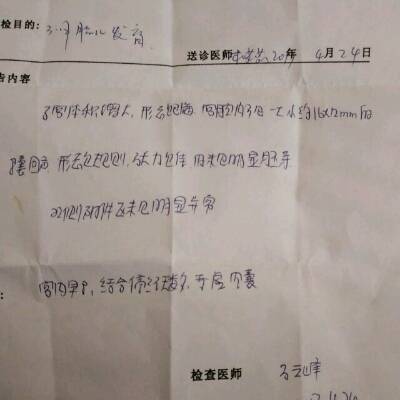 检目的: 了解胎儿发育
送诊医师 20 年 4月24日
告内容
子宫体积增大, 形态饱满, 宫腔内可见一大小约16x12mm的
囊回声, 形态欠规则, 张力欠佳 内未见明显胚芽
双侧附件区未见明显异常
宫内早孕, 结合停经天数, 考虑 囊
检查医师